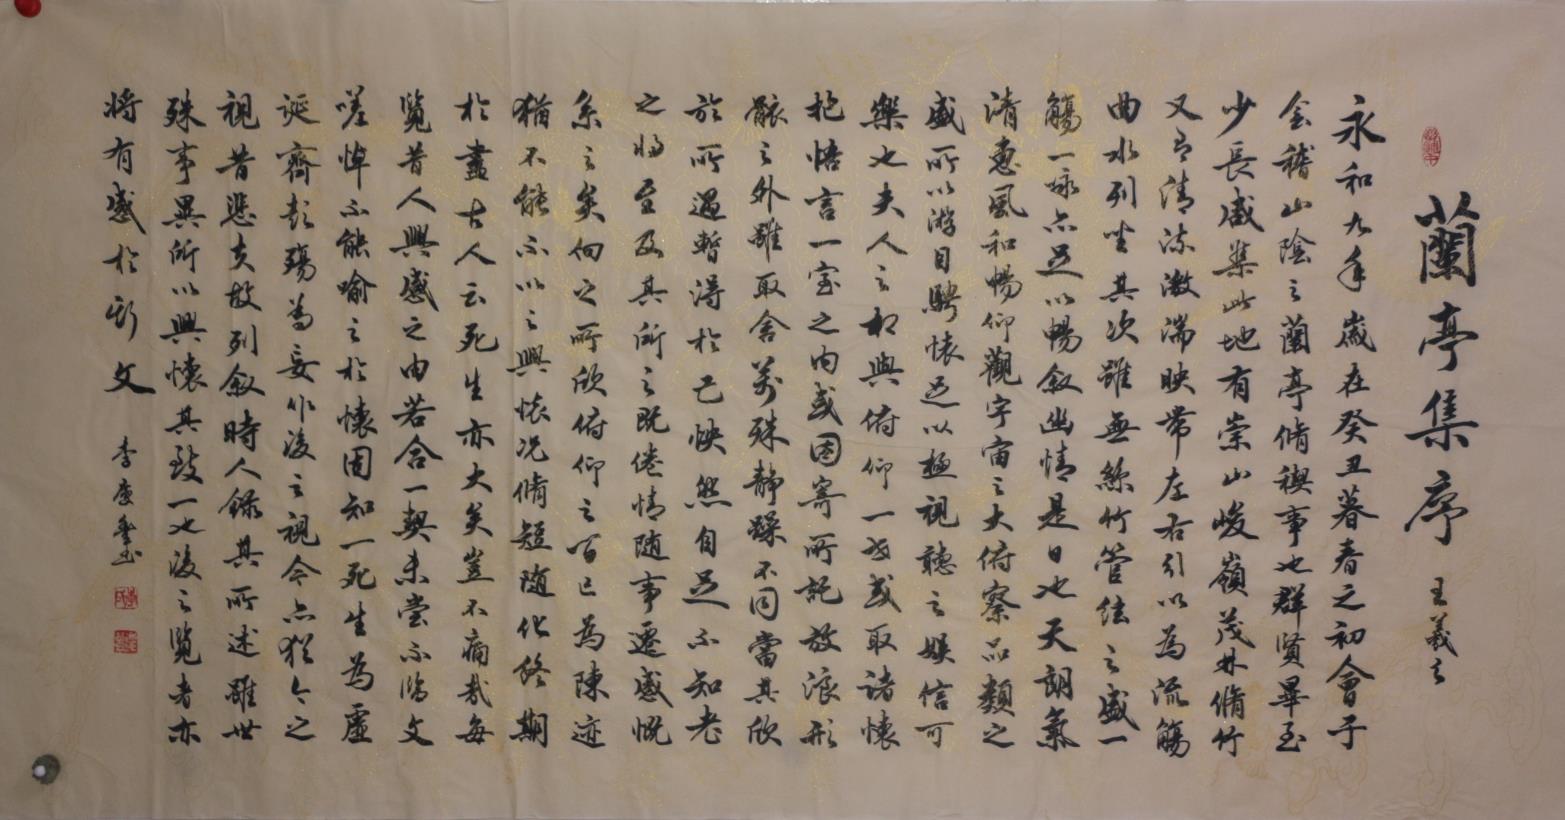 蘭亭集序 王羲之
永和九年歲在癸丑暮春之初會于
会稽山陰之蘭亭脩禊事也群賢畢至
少長咸集此地有崇山峻嶺茂林脩竹
又有清流激湍映帶左右引以為流觴
曲水列坐其次雖無絲竹管弦之盛一
觴一咏亦足以暢叙幽情是日也天朗氣
清惠風和暢仰觀宇宙之大俯察品類之
盛所以游目騁懷足以極視聽之娛信可
樂也夫人之相與俯仰一世或取諸懷
抱悟言一室之内或因寄所託放浪形
骸之外雖取舍萬殊静躁不同當其欣
於所遇暫得於己怏然自足不知老
之將至及其所之既倦情随事遷感慨
系之矣向之所欣俯仰之間已為陳迹
猶不能不以之興懷况脩短随化終期
於盡古人云死生亦大矣豈不痛哉每
覧昔人興感之由若合一契未嘗不臨文
嗟悼不能喻之於懷固知一死生為虛
誕齊彭殤為妄作後之視今亦猶今之
視昔悲夫故列叙時人録其所述雖世
殊事異所以興懷其致一也後之覧者亦
將有感於斯文 李